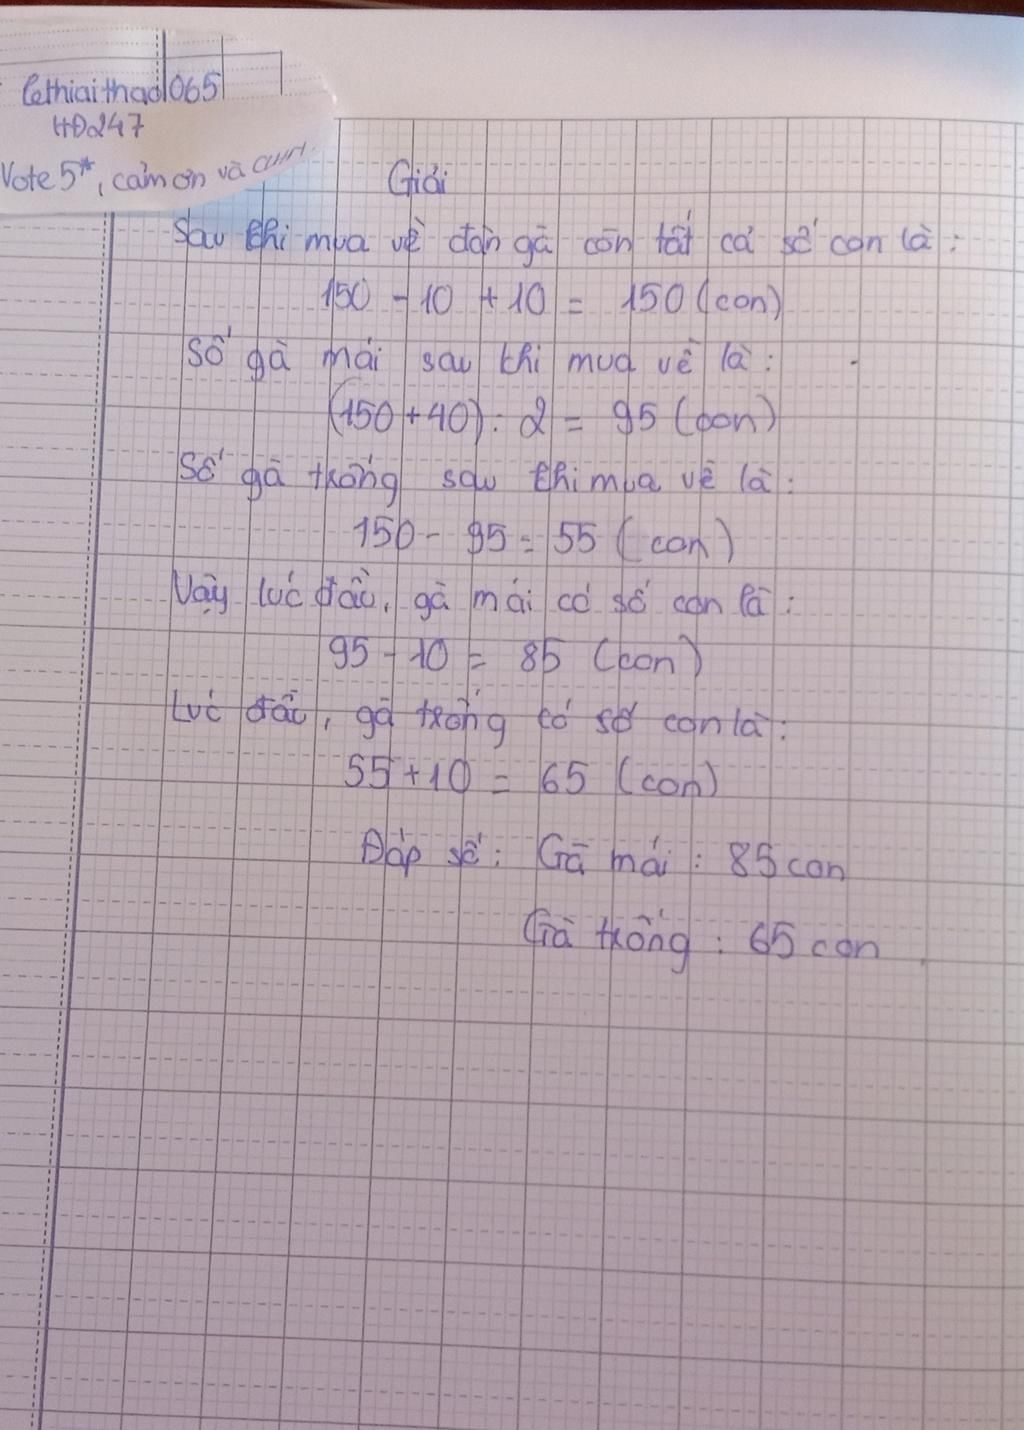 lethiaithao1065
HĐ247
Vote 5*, cảm ơn và CHHN
Giải
Sau khi mua về đàn gà còn tất cả số con là:
150 - 10 + 10 = 150 (con)
Số gà mái sau khi mua về là:
(150 + 40) : 2 = 95 (con)
Số gà trống sau khi mua về là:
150 - 95 = 55 (con)
Vậy lúc đầu, gà mái có số con là:
95 - 10 = 85 (con)
Lúc đầu, gà trống có số con là:
55 + 10 = 65 (con)
Đáp số: Gà mái: 85 con
Gà trống: 65 con